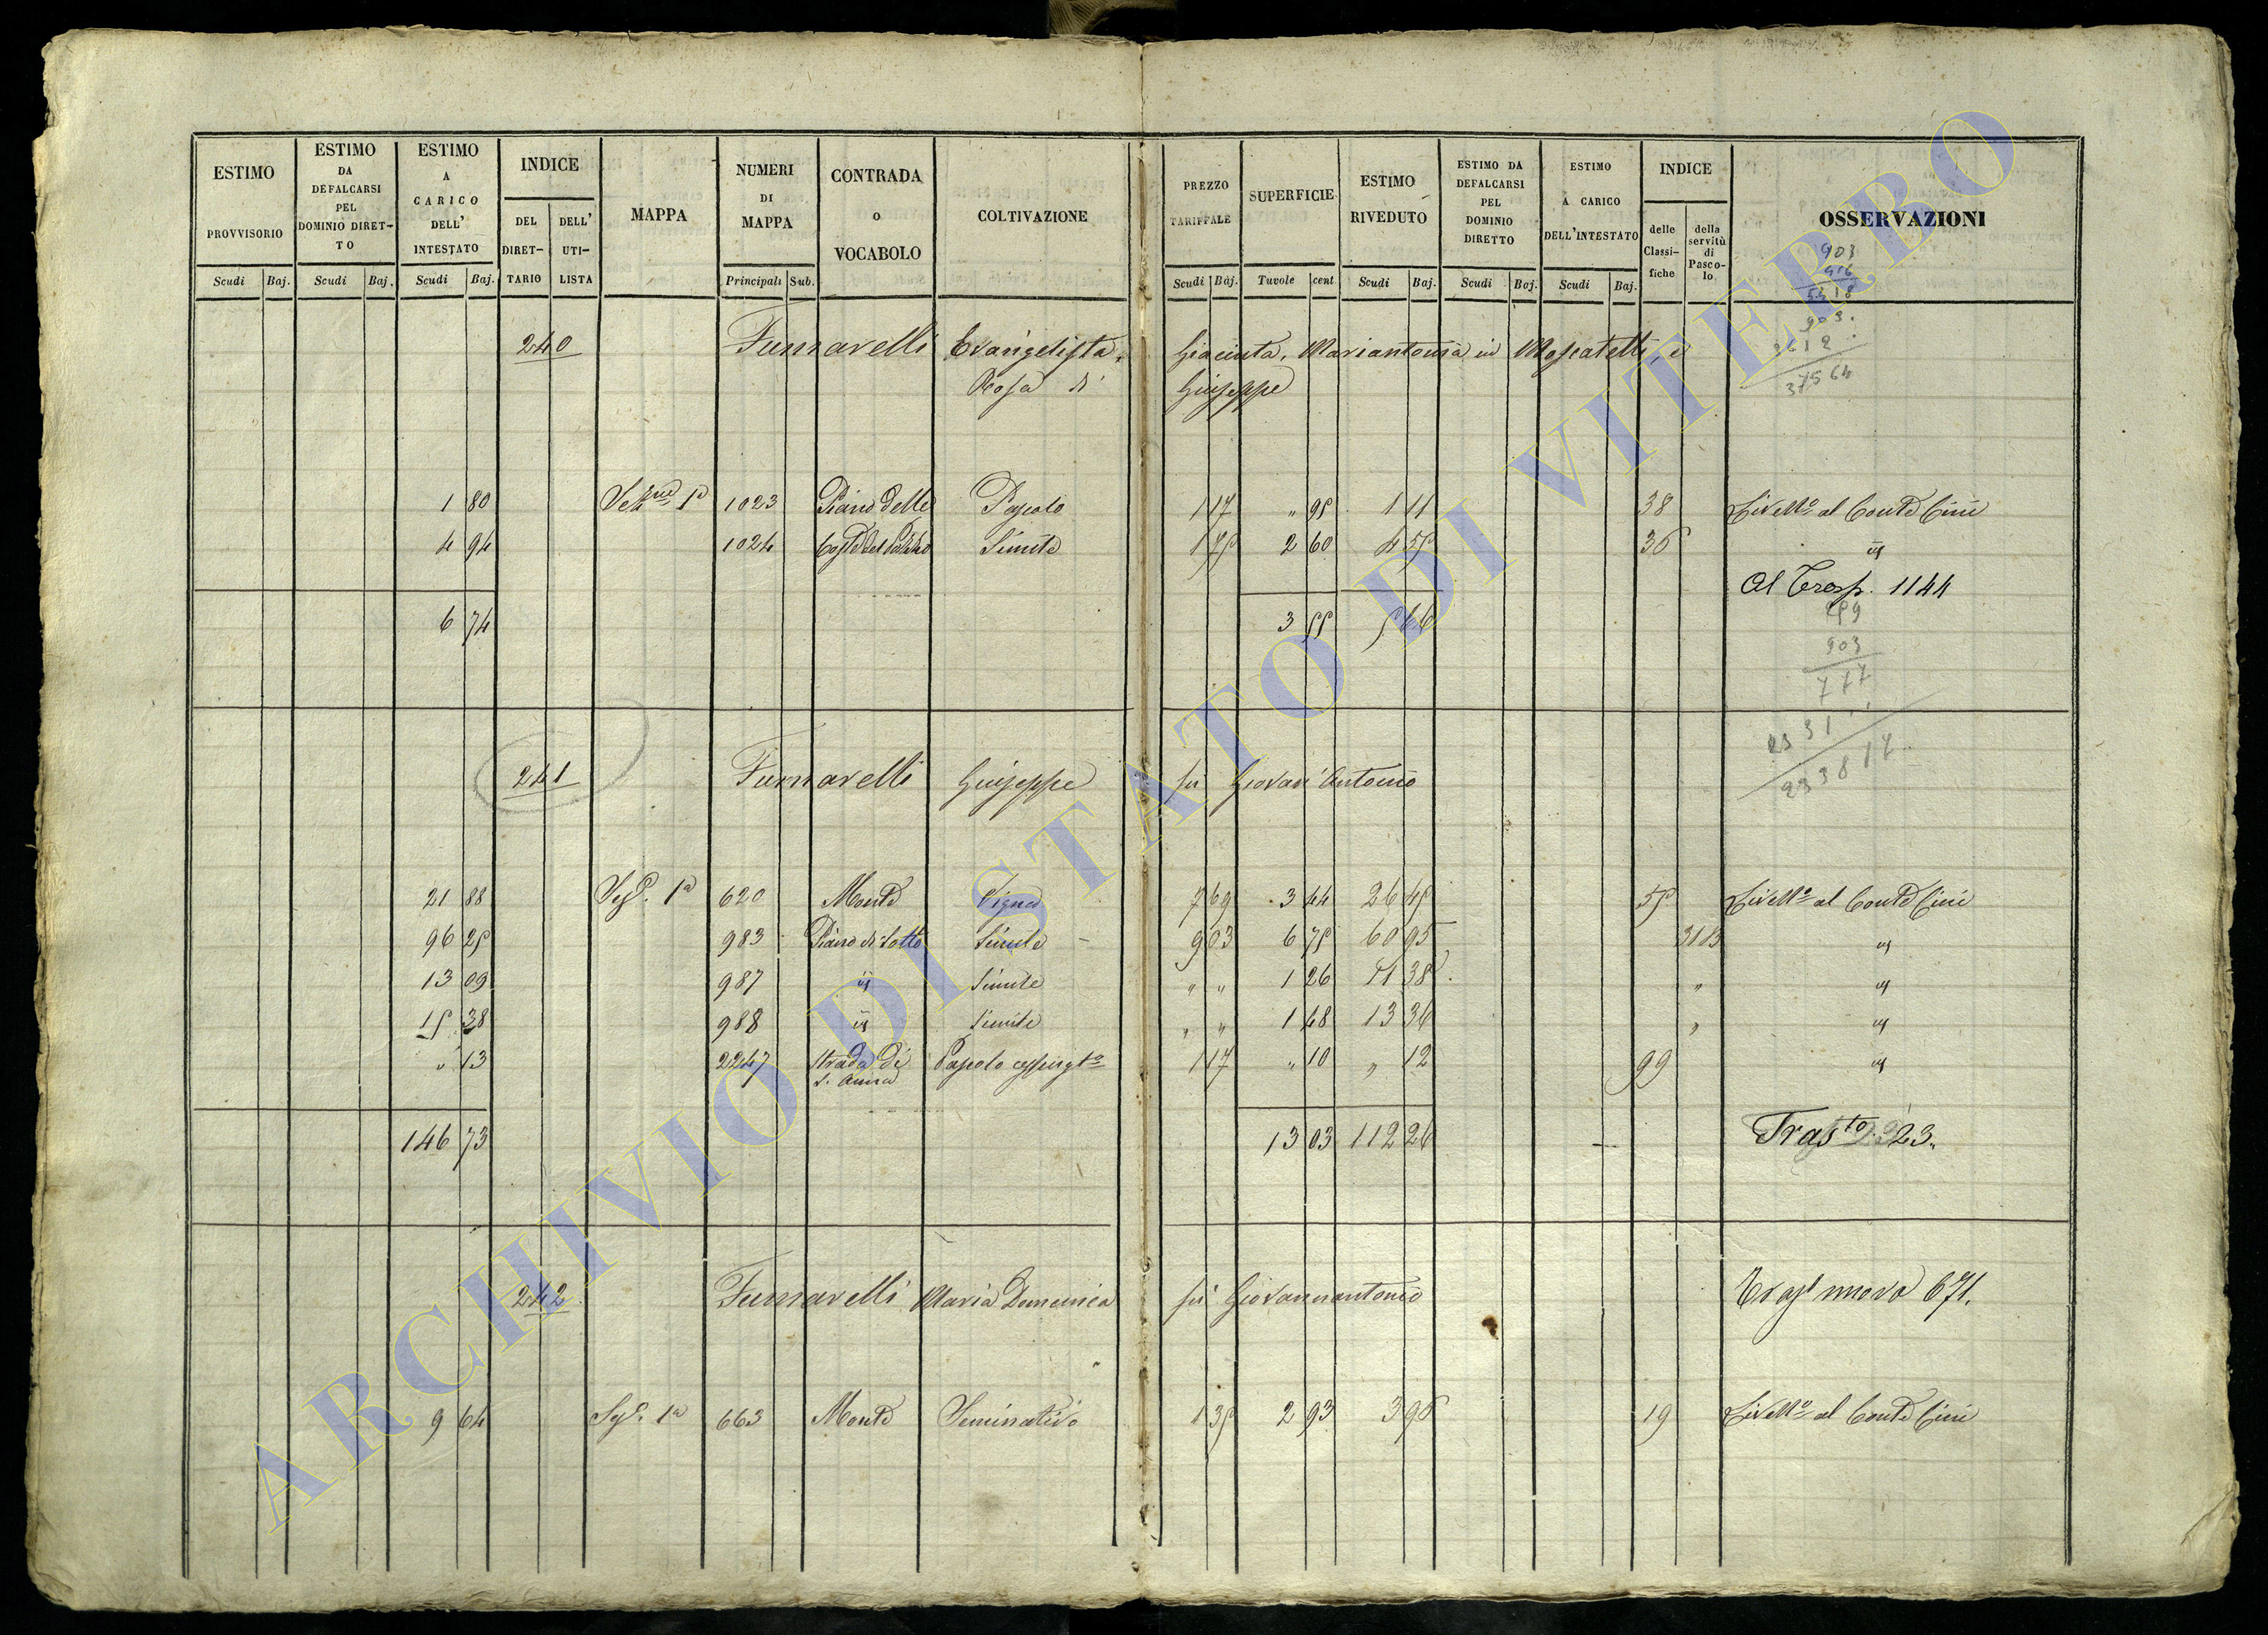 ESTIMO PROVVISORIO
Scudi Baj.
ESTIMO DA DEFALCARSI PEL DOMINIO DIRET-TO
Scudi Baj.
ESTIMO A CARICO DELL' INTESTATO
Scudi Baj.
INDICE
DEL DIRET-TARIO
DELL' UTI-LISTA
MAPPA
NUMERI DI MAPPA
Principali Sub.
CONTRADA O VOCABOLO
COLTIVAZIONE
PREZZO TARIFFALE
Scudi Baj.
SUPERFICIE
Tavole cent
ESTIMO RIVEDUTO
Scudi Baj.
ESTIMO DA DEFALCARSI PEL DOMINIO DIRETTO
Scudi Baj.
ESTIMO A CARICO DELL'INTESTATO
Scudi Baj.
INDICE
delle Classi-fiche
della servitù di Pasco-lo
OSSERVAZIONI
903
903.
3612
37564
240 Fumarelli Evangelista, Giacinta, Mariantonia in Moscatelli, e
Rosa di Giuseppe
1 80 1ª 1023 Piano delle Pascolo 1 17 " 95 1 11 38 Livellº al Conte Cini
4 94 1024 Simile 1 75 2 60 4 55 36 id
Al Trasp. 1144
6 74 3 55 5 66
903
777
2331
233817
241 Fumarelli Giuseppe fu Giovan' Antonio
21 88 1ª 620 Monte Vigna 7 69 3 44 26 45 55 Livellº al Conte Cini
96 25 983 Piano di Sotto Simile 9 03 6 75 60 95 id
13 09 987 id Simile " " 1 26 11 38 " id
15 38 988 id Simile " " 1 48 13 36 " id
" 13 2247 Strada di S. Anna Pascolo 1 17 " 10 " 12 99 id
146 73 13 03 112 26 Trasto. 23.
242 Fumarelli Maria Domenica fu Giovannantonio nuovo 671.
9 64 1ª 663 Monte Seminativo 1 35 2 93 3 96 19 Livellº al Conte Cini
ARCHIVIO DI STATO DI VITERBO